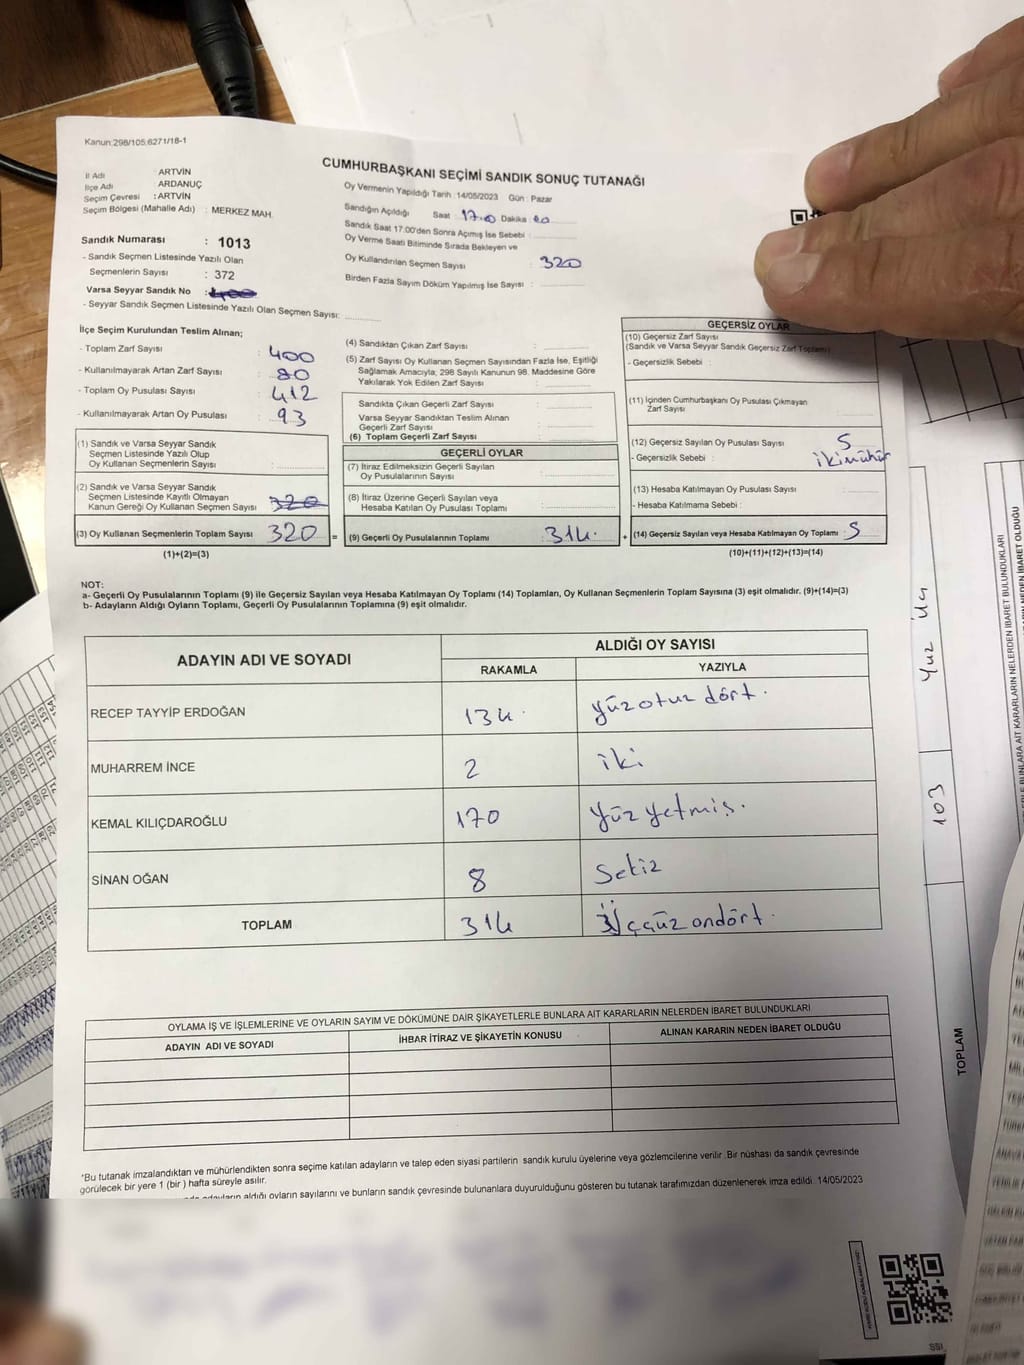 Kanun:298/105;6271/18-1
CUMHURBAŞKANI SEÇİMİ SANDIK SONUÇ TUTANAĞI
İl Adı : ARTVİN
İlçe Adı ARDANUÇ
Seçim Çevresi : ARTVİN
Seçim Bölgesi (Mahalle Adı) : MERKEZ MAH.
Sandık Numarası : 1013
- Sandık Seçmen Listesinde Yazılı Olan
Seçmenlerin Sayısı : 372
Varsa Seyyar Sandık No :
- Seyyar Sandık Seçmen Listesinde Yazılı Olan Seçmen Sayısı:
Oy Vermenin Yapıldığı Tarih :14/05/2023 Gün : Pazar
Sandığın Açıldığı Saat : 17.00 Dakika : 00
Sandık Saat 17:00'den Sonra Açımış İse Sebebi :
Oy Verme Saati Bitiminde Sırada Bekleyen ve
Oy Kullandırılan Seçmen Sayısı : 320
Birden Fazla Sayım Döküm Yapılmış İse Sayısı :
İlçe Seçim Kurulundan Teslim Alınan;
- Toplam Zarf Sayısı : 400
- Kullanılmayarak Artan Zarf Sayısı : 80
- Toplam Oy Pusulası Sayısı : 412
- Kullanılmayarak Artan Oy Pusulası : 93
(1) Sandık ve Varsa Seyyar Sandık
Seçmen Listesinde Yazılı Olup
Oy Kullanan Seçmenlerin Sayısı :
(2) Sandık ve Varsa Seyyar Sandık
Seçmen Listesinde Kayıtlı Olmayan
Kanun Gereği Oy Kullanan Seçmen Sayısı : 320
(3) Oy Kullanan Seçmenlerin Toplam Sayısı : 320 =
(1)+(2)=(3)
(4) Sandıktan Çıkan Zarf Sayısı :
(5) Zarf Sayısı Oy Kullanan Seçmen Sayısından Fazla İse, Eşitliği
Sağlamak Amacıyla, 298 Sayılı Kanunun 98. Maddesine Göre
Yakılarak Yok Edilen Zarf Sayısı :
Sandıkta Çıkan Geçerli Zarf Sayısı :
Varsa Seyyar Sandıktan Teslim Alınan
Geçerli Zarf Sayısı :
(6) Toplam Geçerli Zarf Sayısı :
GEÇERLİ OYLAR
(7) İtiraz Edilmeksizin Geçerli Sayılan
Oy Pusulalarının Sayısı :
(8) İtiraz Üzerine Geçerli Sayılan veya
Hesaba Katılan Oy Pusulası Toplamı :
(9) Geçerli Oy Pusulalarının Toplamı : 314. +
GEÇERSİZ OYLAR
(10) Geçersiz Zarf Sayısı
(Sandık ve Varsa Seyyar Sandık Geçersiz Zarf Toplamı) :
- Geçersizlik Sebebi :
(11) İçinden Cumhurbaşkanı Oy Pusulası Çıkmayan
Zarf Sayısı :
(12) Geçersiz Sayılan Oy Pusulası Sayısı : 5
- Geçersizlik Sebebi : iki mühür
(13) Hesaba Katılmayan Oy Pusulası Sayısı :
- Hesaba Katılmama Sebebi :
(14) Geçersiz Sayılan veya Hesaba Katılmayan Oy Toplamı : 5
(10)+(11)+(12)+(13)=(14)
NOT:
a- Geçerli Oy Pusulalarının Toplamı (9) ile Geçersiz Sayılan veya Hesaba Katılmayan Oy Toplamı (14) Toplamları, Oy Kullanan Seçmenlerin Toplam Sayısına (3) eşit olmalıdır. (9)+(14)=(3)
b- Adayların Aldığı Oyların Toplamı, Geçerli Oy Pusulalarının Toplamına (9) eşit olmalıdır.
ADAYIN ADI VE SOYADI ALDIĞI OY SAYISI
RAKAMLA YAZIYLA
RECEP TAYYİP ERDOĞAN 134. yüz otuz dört.
MUHARREM İNCE 2 iki
KEMAL KILIÇDAROĞLU 170 yüz yetmiş.
SİNAN OĞAN 8 Sekiz
TOPLAM 314 Üççüz ondört.
OYLAMA İŞ VE İŞLEMLERİNE VE OYLARIN SAYIM VE DÖKÜMÜNE DAİR ŞİKAYETLERLE BUNLARA AİT KARARLARIN NELERDEN İBARET BULUNDUKLARI
ADAYIN ADI VE SOYADI İHBAR İTİRAZ VE ŞİKAYETİN KONUSU ALINAN KARARIN NEDEN İBARET OLDUĞU
*Bu tutanak imzalandıktan ve mühürlendikten sonra seçime katılan adayların ve talep eden siyasi partilerin sandık kurulu üyelerine veya gözlemcilerine verilir. Bir nüshası da sandık çevresinde
görülecek bir yere 1 (bir ) hafta süreyle asılır.
aldığı oyların sayılarını ve bunların sandık çevresinde bulunanlara duyurulduğunu gösteren bu tutanak tarafımızdan düzenlenerek imza edildi. 14/05/2023
yüz üç
103
TOPLAM